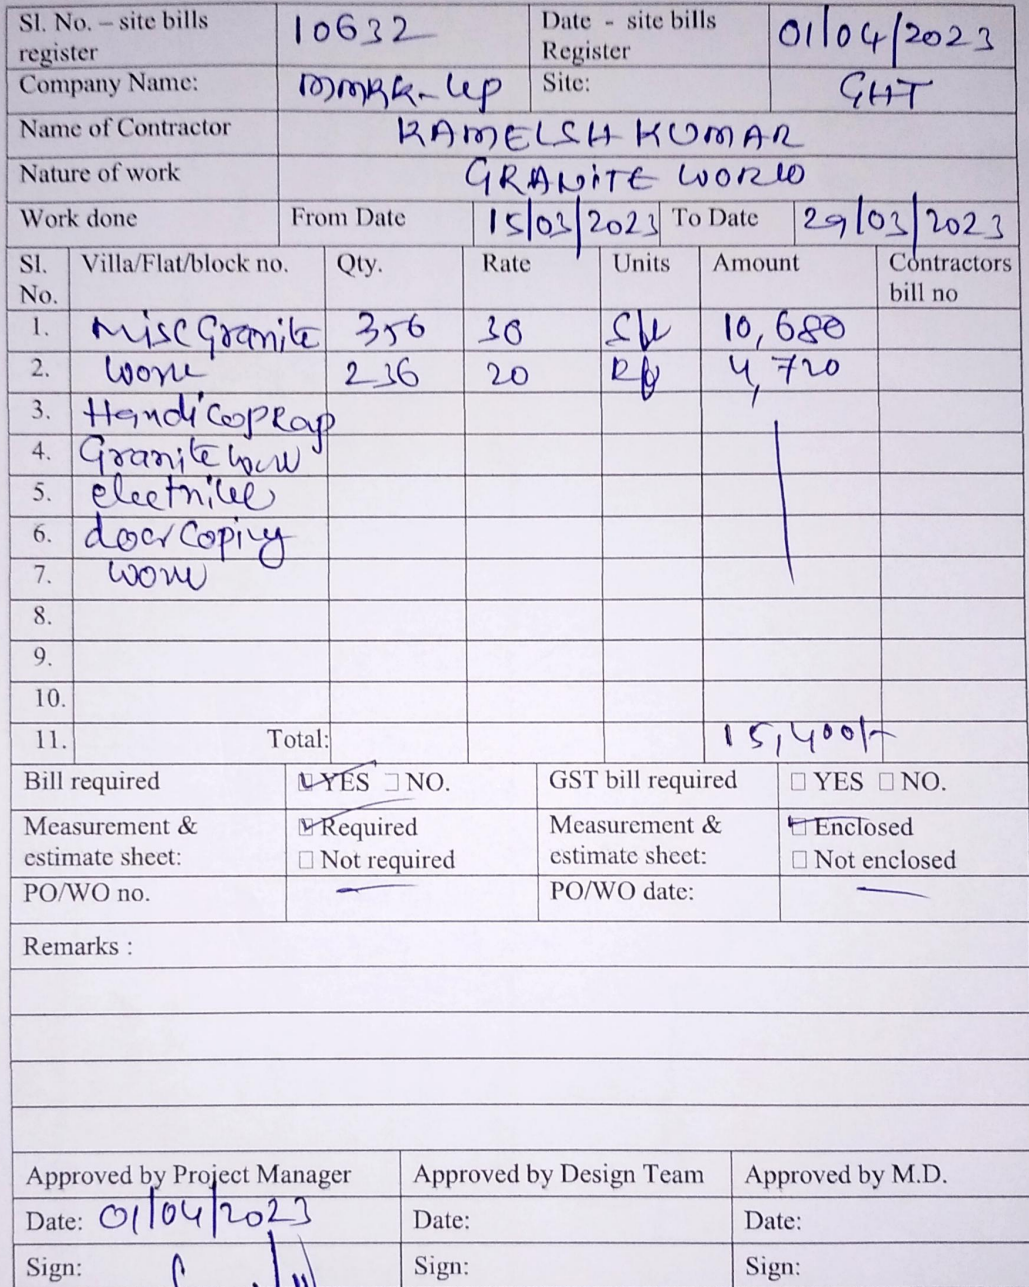 Sl. No. – site bills register 10632 Date - site bills Register 01/04/2023
Company Name: Site: GHT
Name of Contractor KAMELSH KUMAR
Nature of work GRANITE WORK
Work done From Date 15/03/2023 To Date 29/03/2023
Sl. No. Villa/Flat/block no. Qty. Rate Units Amount Contractors bill no
1. Misc Granite 356 30 10,680
2. work 236 20 4,720
3. Handicoprap
4. Granite work
5.
6. door Coping
7. work
8.
9.
10.
11. Total: 15,400/-
Bill required YES NO. GST bill required YES NO.
Measurement & estimate sheet: Required Not required Measurement & estimate sheet: Enclosed Not enclosed
PO/WO no. — PO/WO date: —
Remarks :
Approved by Project Manager Approved by Design Team Approved by M.D.
Date: 01/04/2023 Date: Date:
Sign: Sign: Sign: